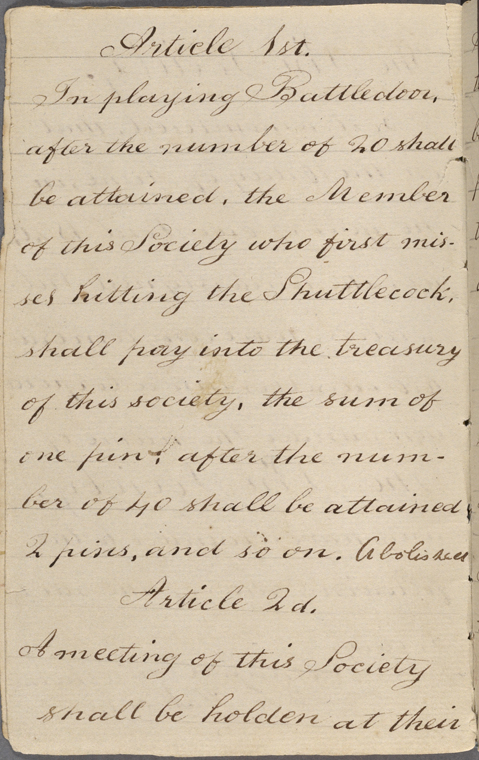 Article 1st.
In playing Battledoor,
after the number of 20 shall
be attained, the Member
of this Society who first mis-
ses hitting the Shuttlecock,
shall pay into the treasury
of this society, the sum of
one pin; after the num-
ber of 40 shall be attained
2 pins, and so on. Abolished
Article 2d.
A meeting of this Society
shall be holden at their